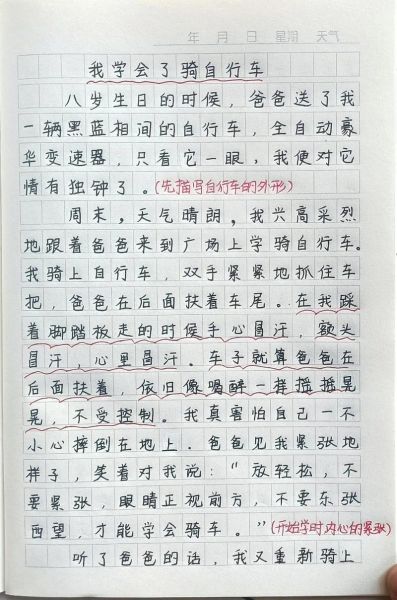 年 月 日 星期 天气
我学会了骑自行车
八岁生日的时候，爸爸送了我
一辆黑蓝相间的自行车，全自动豪
华变速器，只看它一眼，我便对它
情有独钟了。(先描写自行车的外形)
周末，天气晴朗，我兴高采烈
地跟着爸爸来到广场上学骑自行车。
我骑上自行车，双手紧紧地抓住车
把，爸爸在后面扶着车尾。在我踩
着脚踏板走的时候手心冒汗，额头
冒汗，心里冒汗。车子就算爸爸在
后面扶着，依旧像喝醉一样摇摇晃
晃，不受控制。我真害怕自己一不
小心摔倒在地上．爸爸见我紧张地
样子，笑着对我说：“放轻松，不
要紧张，眼睛正视前方，不要东张
西望，才能学会骑车。”(开始学时,内心的紧张)
听了爸爸的话，我又重新骑上